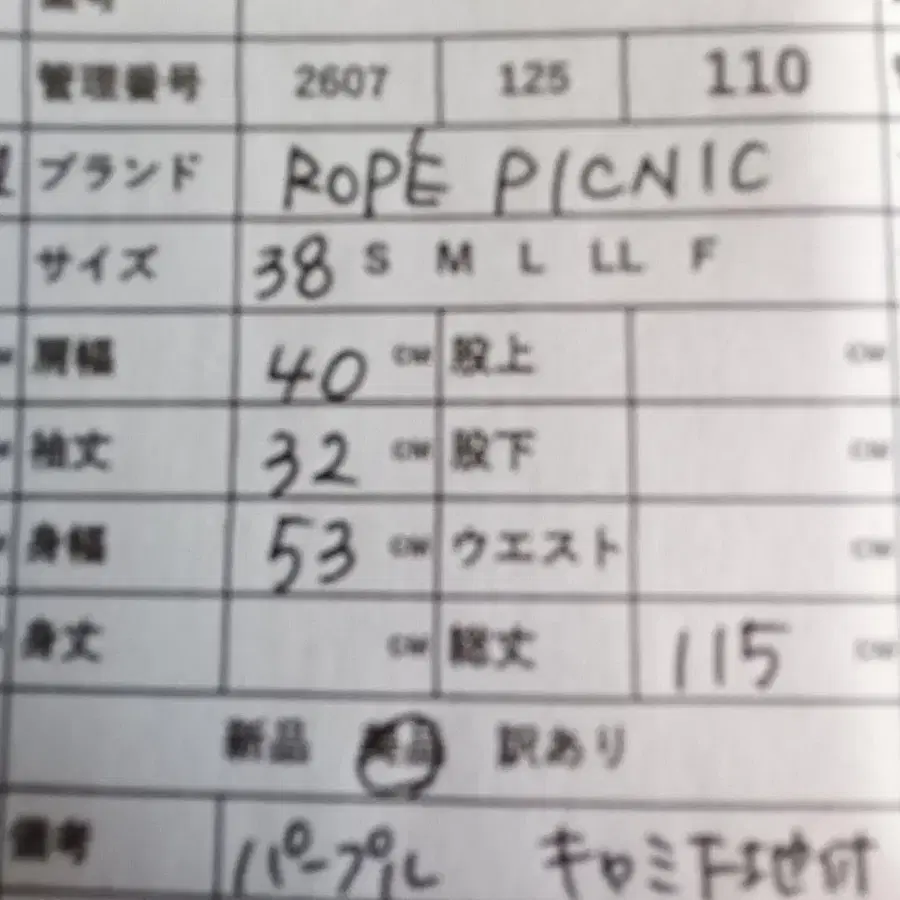 備考
管理番号 2607 125 110
ブランド ROPE PICNIC
サイズ 38 S M L LL F
肩幅 40 cm 股上 cm
袖丈 32 cm 股下 cm
身幅 53 cm ウエスト cm
身丈 cm 総丈 115 cm
新品 美品 訳あり
備考 パープル キャミ下地付